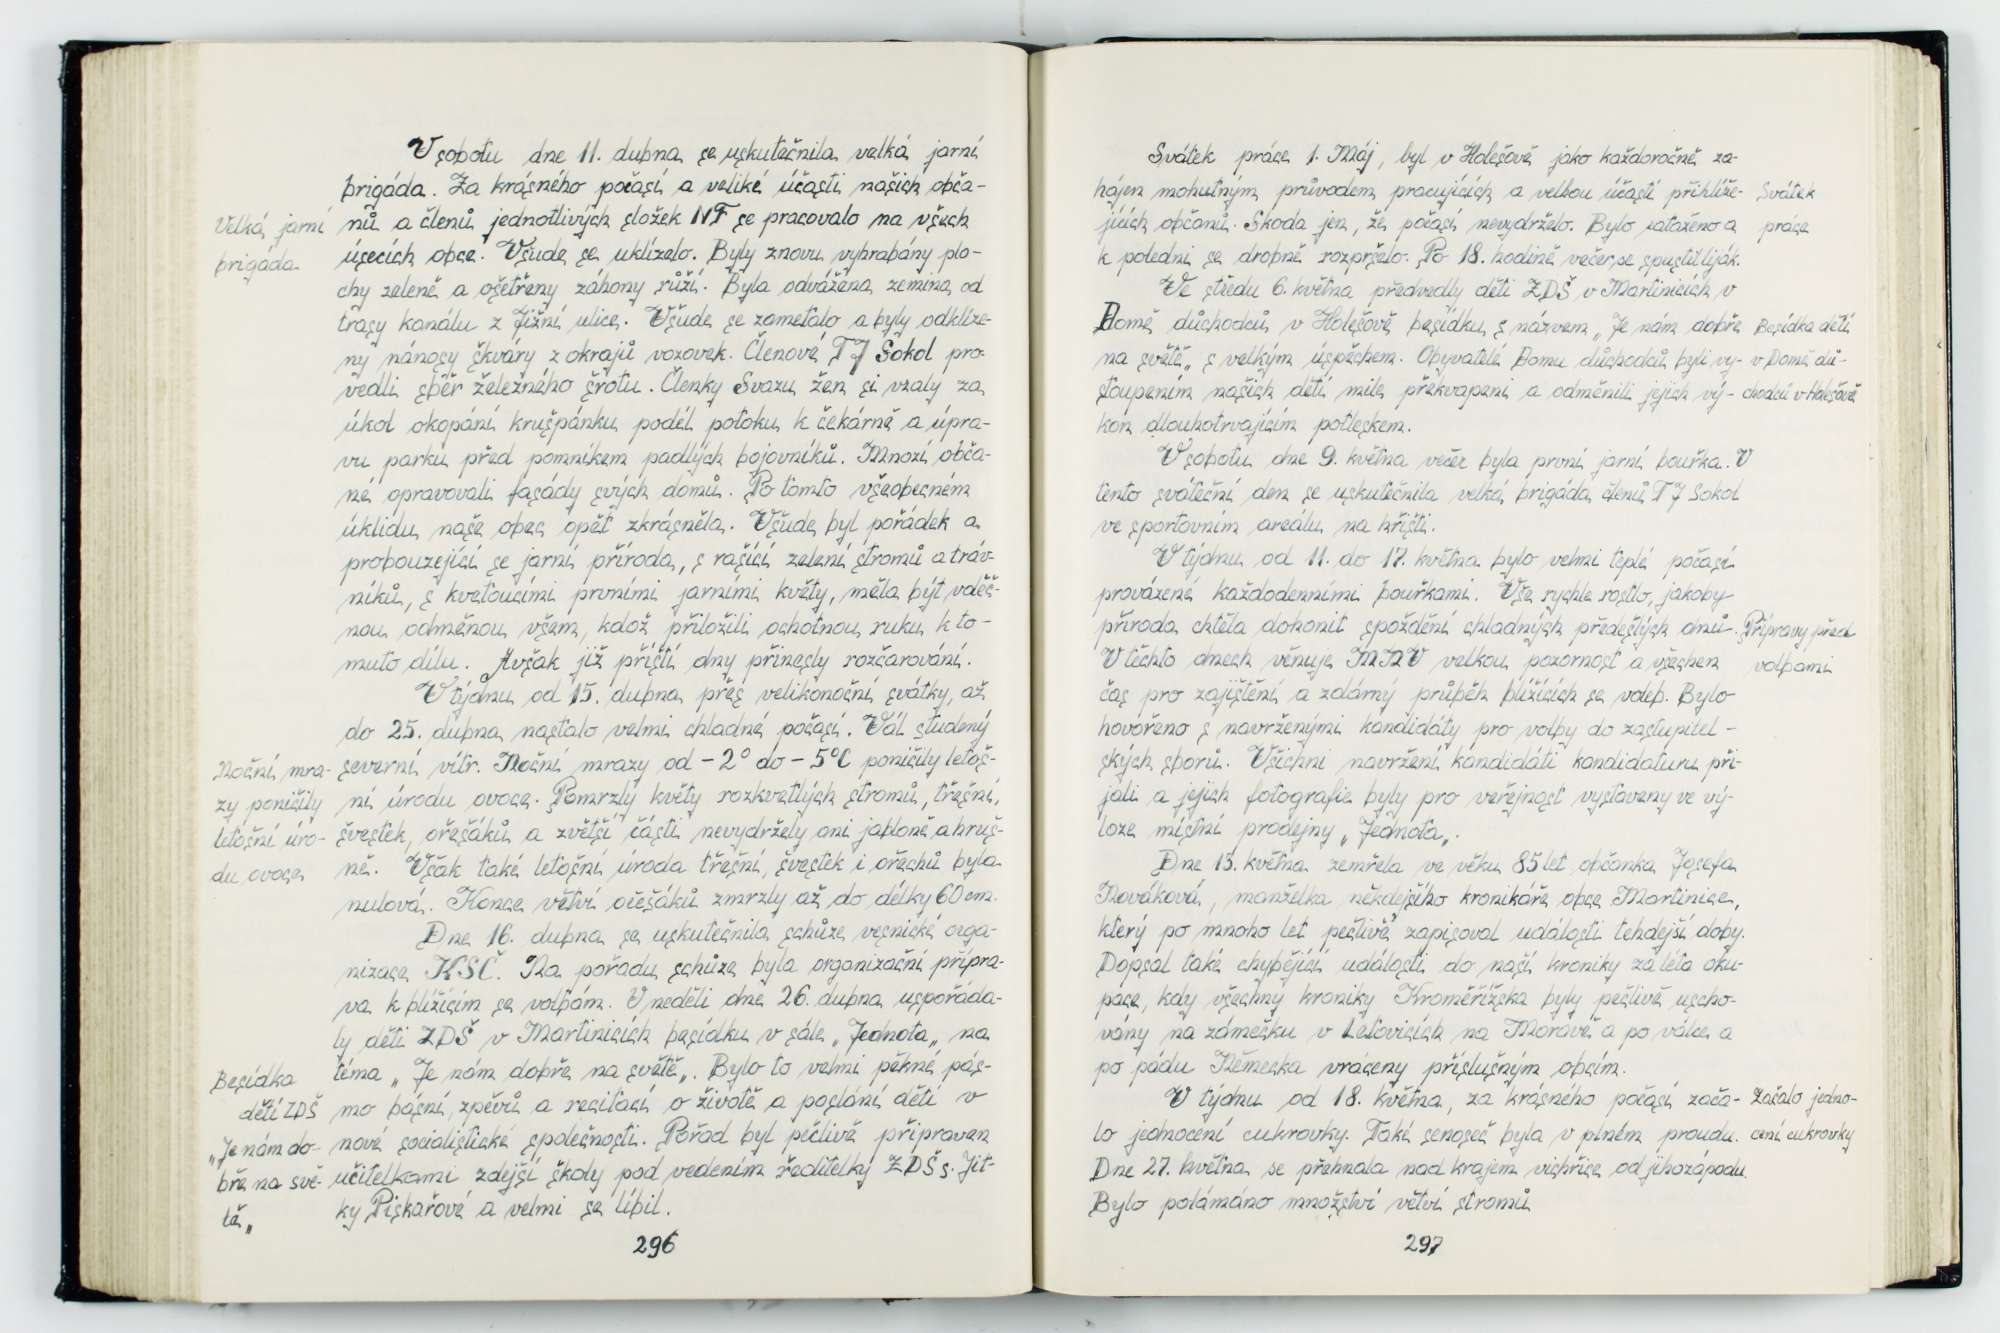 V sobotu dne 11. dubna se uskutečnila velká jarní
brigáda. Za krásného počasí a veliké účasti našich obča-
Velká jarní
brigáda
nů a členů jednotlivých složek NF se pracovalo na všech
úsecích obce. Všude se uklízelo. Byly znovu vyhrabány plo-
chy zeleně a ošetřeny záhony růží. Byla odvážena zemina od
trasy kanálu z Jižní ulice. Všude se zametalo a byly odklize-
ny nánosy škváry z okrajů vozovek. Členové TJ Sokol pro-
vedli sběr železného šrotu. Členky Svazu žen si vzaly za
úkol okopání krušpánku podél potoku k čekárně a úpra-
vu parku před pomníkem padlých bojovníků. Mnozí obča-
né opravovali fasády svých domů. Po tomto všeobecném
úklidu naše obec opět zkrásněla. Všude byl pořádek a
probouzející se jarní příroda, s rašící zelení stromů a tráv-
níků, s kvetoucími prvními jarními květy, měla být vděč-
nou odměnou všem, kdož přiložili ochotnou ruku k to-
muto dílu. Avšak již příští dny přinesly rozčarování.
V týdnu od 15. dubna přes velikonoční svátky, až
do 25. dubna nastalo velmi chladné počasí. Vál studený
Noční mra-
zy poničily
letošní úro-
du ovoce
severní vítr. Noční mrazy od -2° do -5°C poničily letoš-
ní úrodu ovoce. Pomrzlý květy rozkvetlých stromů, třešní,
švestek, ořešáků a zvětší části nevydržely ani jabloně a hruš-
ně. Však také letošní úroda třešní, švestek i ořechů byla
nulová. Konce větví ořešáků zmrzly až do délky 60 cm.
Dne 16. dubna se uskutečnila schůze vesnické orga-
nizace KSČ. Na pořadu schůze byla organizační přípra-
va k blížícím se volbám. V neděli dne 26. dubna uspořáda-
ly děti ZDŠ v Martinicích besídku v sále „Jednota„ na
Besídka
dětí ZDŠ
„Je nám do-
bře na svě-
tě„
téma „Je nám dobře na světě„. Bylo to velmi pěkné pás-
mo básní, zpěvů a recitací o životě a poslání dětí v
nové socialistické společnosti. Pořad byl pečlivě připraven
učitelkami zdejší školy pod vedením ředitelky ZDŠ s. Jit-
ky Piskařové a velmi se líbil.
296
Svátek práce 1. Máj, byl v Holešově jako každoročně za-
hájen mohutným průvodem pracujících a velkou účastí přihlíže-
Svátek
práce
jících občanů. Skoda jen, že počasí nevydrželo. Bylo zataženo a
k poledni se drobně rozpršelo. Po 18. hodině večer se spustil liják.
Ve středu 6. května předvedly děti ZDŠ v Martinicích v
Domě důchodců v Holešově besídku s názvem „Je nám dobře
Besídka dětí
v Domě dů-
chodců v Holešově
na světě„ s velkým úspěchem. Obyvatelé Domu důchodců byli vy-
stoupením našich dětí mile překvapeni a odměnili jejich vý-
kon dlouhotrvajícím potleskem.
V sobotu dne 9. května večer byla první jarní bouřka. V
tento sváteční den se uskutečnila velká brigáda členů TJ Sokol
ve sportovním areálu na hřišti.
V týdnu od 11. do 17. května bylo velmi teplé počasí
provázené každodenními bouřkami. Vše rychle rostlo, jakoby
příroda chtěla dohonit spoždění chladných předešlých dnů.
Přípravy před
volbami
V těchto dnech věnuje MNV velkou pozornost a všechen
čas pro zajištění a zdárný průběh blížících se voleb. Bylo
hovořeno s navrženými kandidáty pro volby do zastupitel-
ských sborů. Všichni navržení kandidáti kandidaturu při-
jali a jejich fotografie byly pro veřejnost vystaveny ve vý-
loze místní prodejny „Jednota„.
Dne 13. května zemřela ve věku 85 let občanka Josefa
Nováková, manželka někdejšího kronikáře obce Martinice,
který po mnoho let pečlivě zapisoval události tehdejší doby.
Dopsal také chybějící události do naší kroniky za léta oku-
pace, kdy všechny kroniky Kroměřížska byly pečlivě uscho-
vány na zámečku v Letovicích na Moravě a po válce a
po pádu Německa vráceny příslušným obcím.
V týdnu od 18. května, za krásného počasí zača-
Začalo jedno-
cení cukrovky
lo jednocení cukrovky. Také senoseč byla v plném proudu.
Dne 27. května se přehnala nad krajem vichřice od jihozápadu.
Bylo polámáno množství větví stromů
297